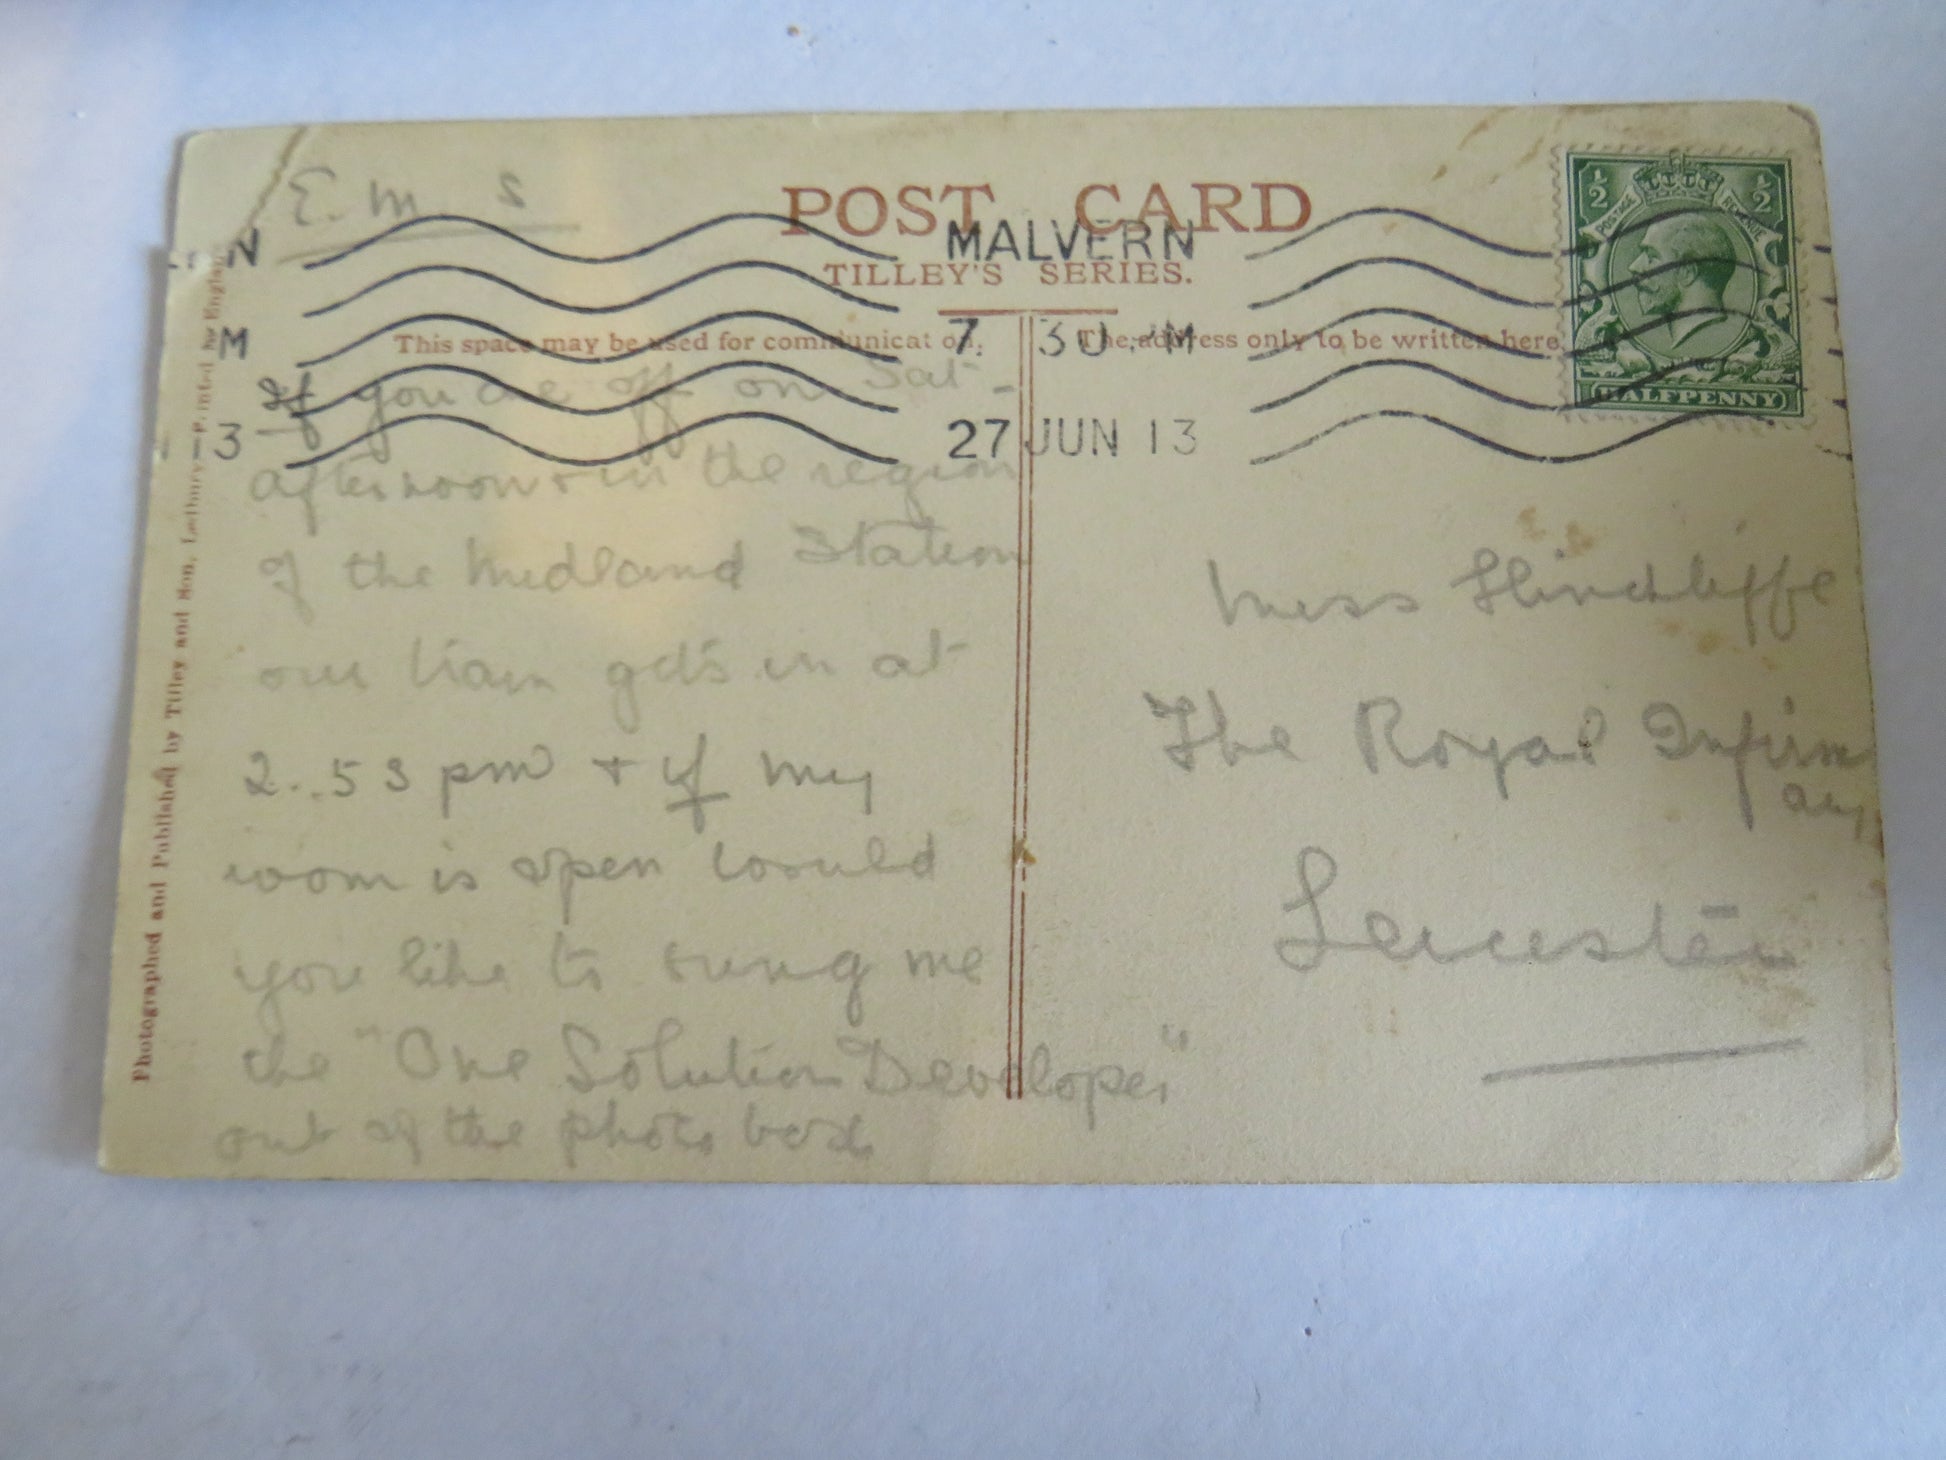 E. M S
POST CARD
MALVERN
TILLEY'S SERIES.
N
This space may be used for communication.
The address only to be written here.
7. 30 M
M
27 JUN 13
3
½ ½
POSTAGE REVENUE
HALFPENNY
If you are off on Sat-
afternoon & in the region
of the Midland Station
our train gets in at
2..53 pm & if my
room is open would
you like to bring me
the "One Solution Developer"
out of the photo box
Miss Hinchliffe
The Royal Infirm
ary
Leicester
Photographed and Published by Tilley and Son, Ledbury. Printed in England